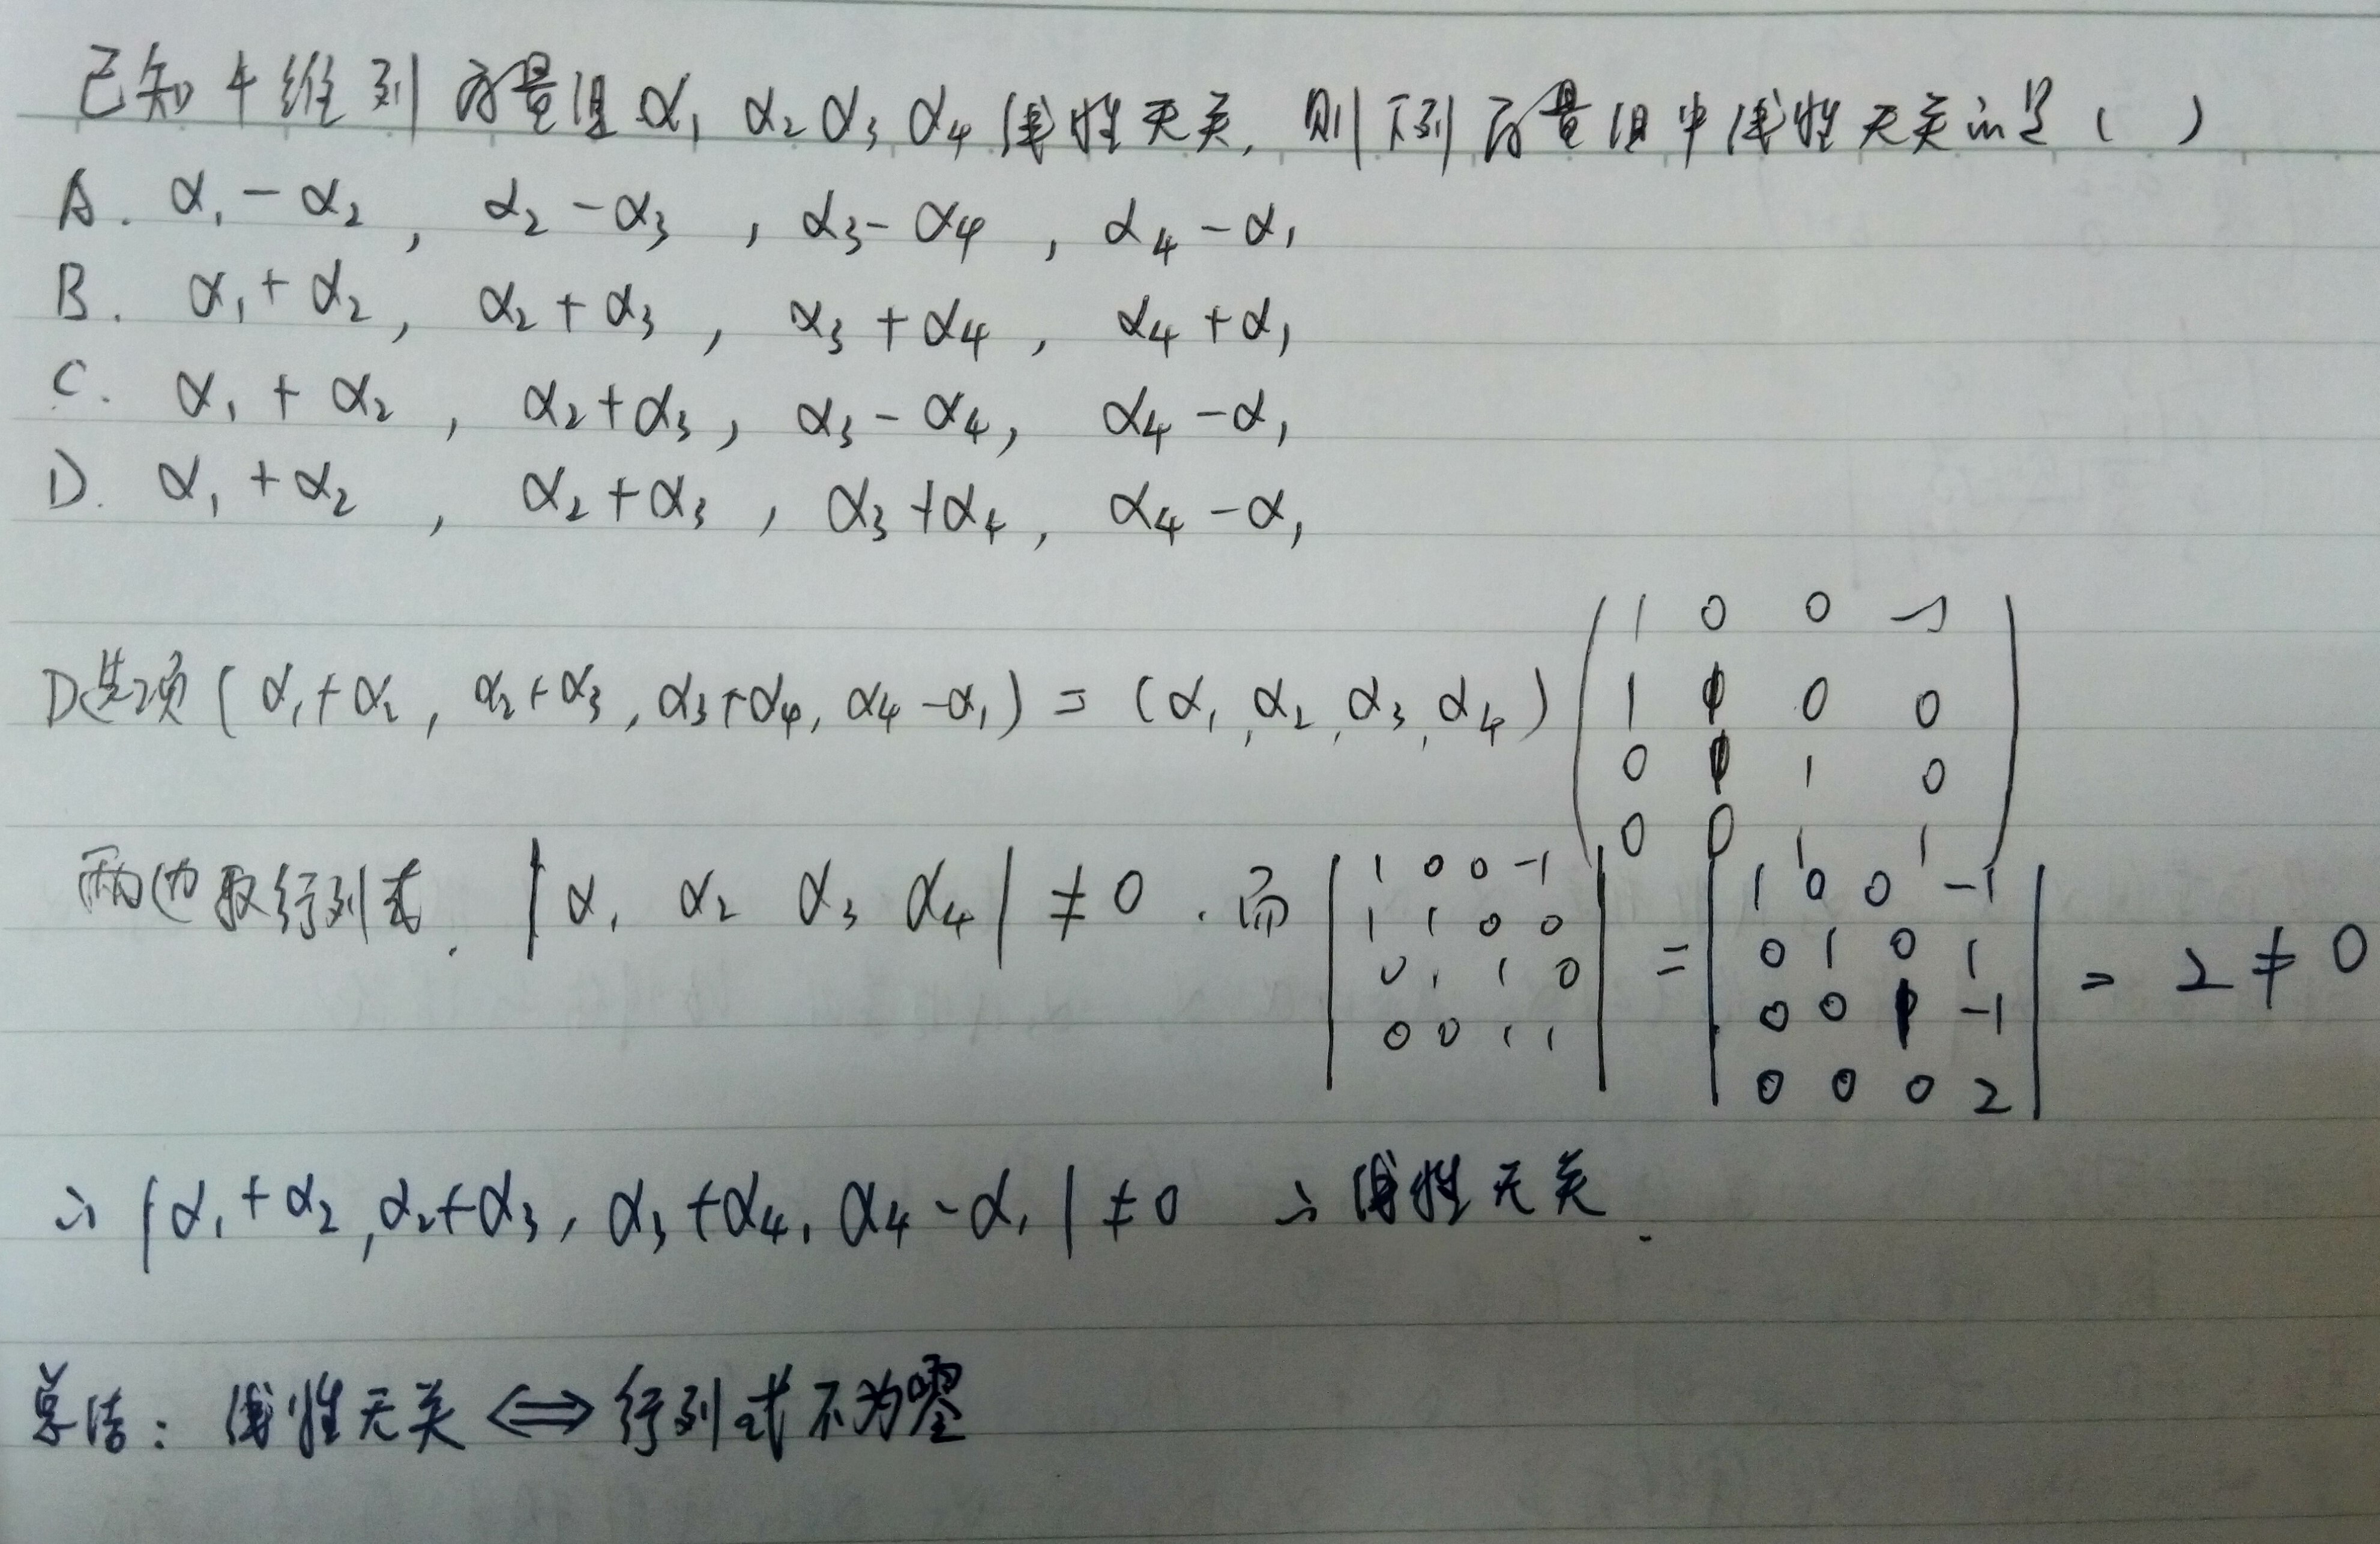 已知4维列向量组α₁ α₂ α₃ α₄线性无关, 则下列向量组中线性无关的是 ( )
A. α₁-α₂ , α₂-α₃ , α₃-α₄ , α₄-α₁
B. α₁+α₂ , α₂+α₃ , α₃+α₄ , α₄+α₁
C. α₁+α₂ , α₂+α₃ , α₃-α₄ , α₄-α₁
D. α₁+α₂ , α₂+α₃ , α₃+α₄ , α₄-α₁
D选项 (α₁+α₂ , α₂+α₃ , α₃+α₄ , α₄-α₁) = (α₁, α₂, α₃, α₄)
1 0 0 -1
1 1 0 0
0 1 1 0
0 0 1 1
两边取行列式. |α₁ α₂ α₃ α₄| ≠ 0 . 而
1 0 0 -1
1 1 0 0
0 1 1 0
0 0 1 1
=
1 0 0 -1
0 1 0 1
0 0 1 -1
0 0 0 2
= 2 ≠ 0
∴ |α₁+α₂, α₂+α₃, α₃+α₄, α₄-α₁| ≠ 0 ∴ 线性无关.
总结: 线性无关 ⟺ 行列式不为零